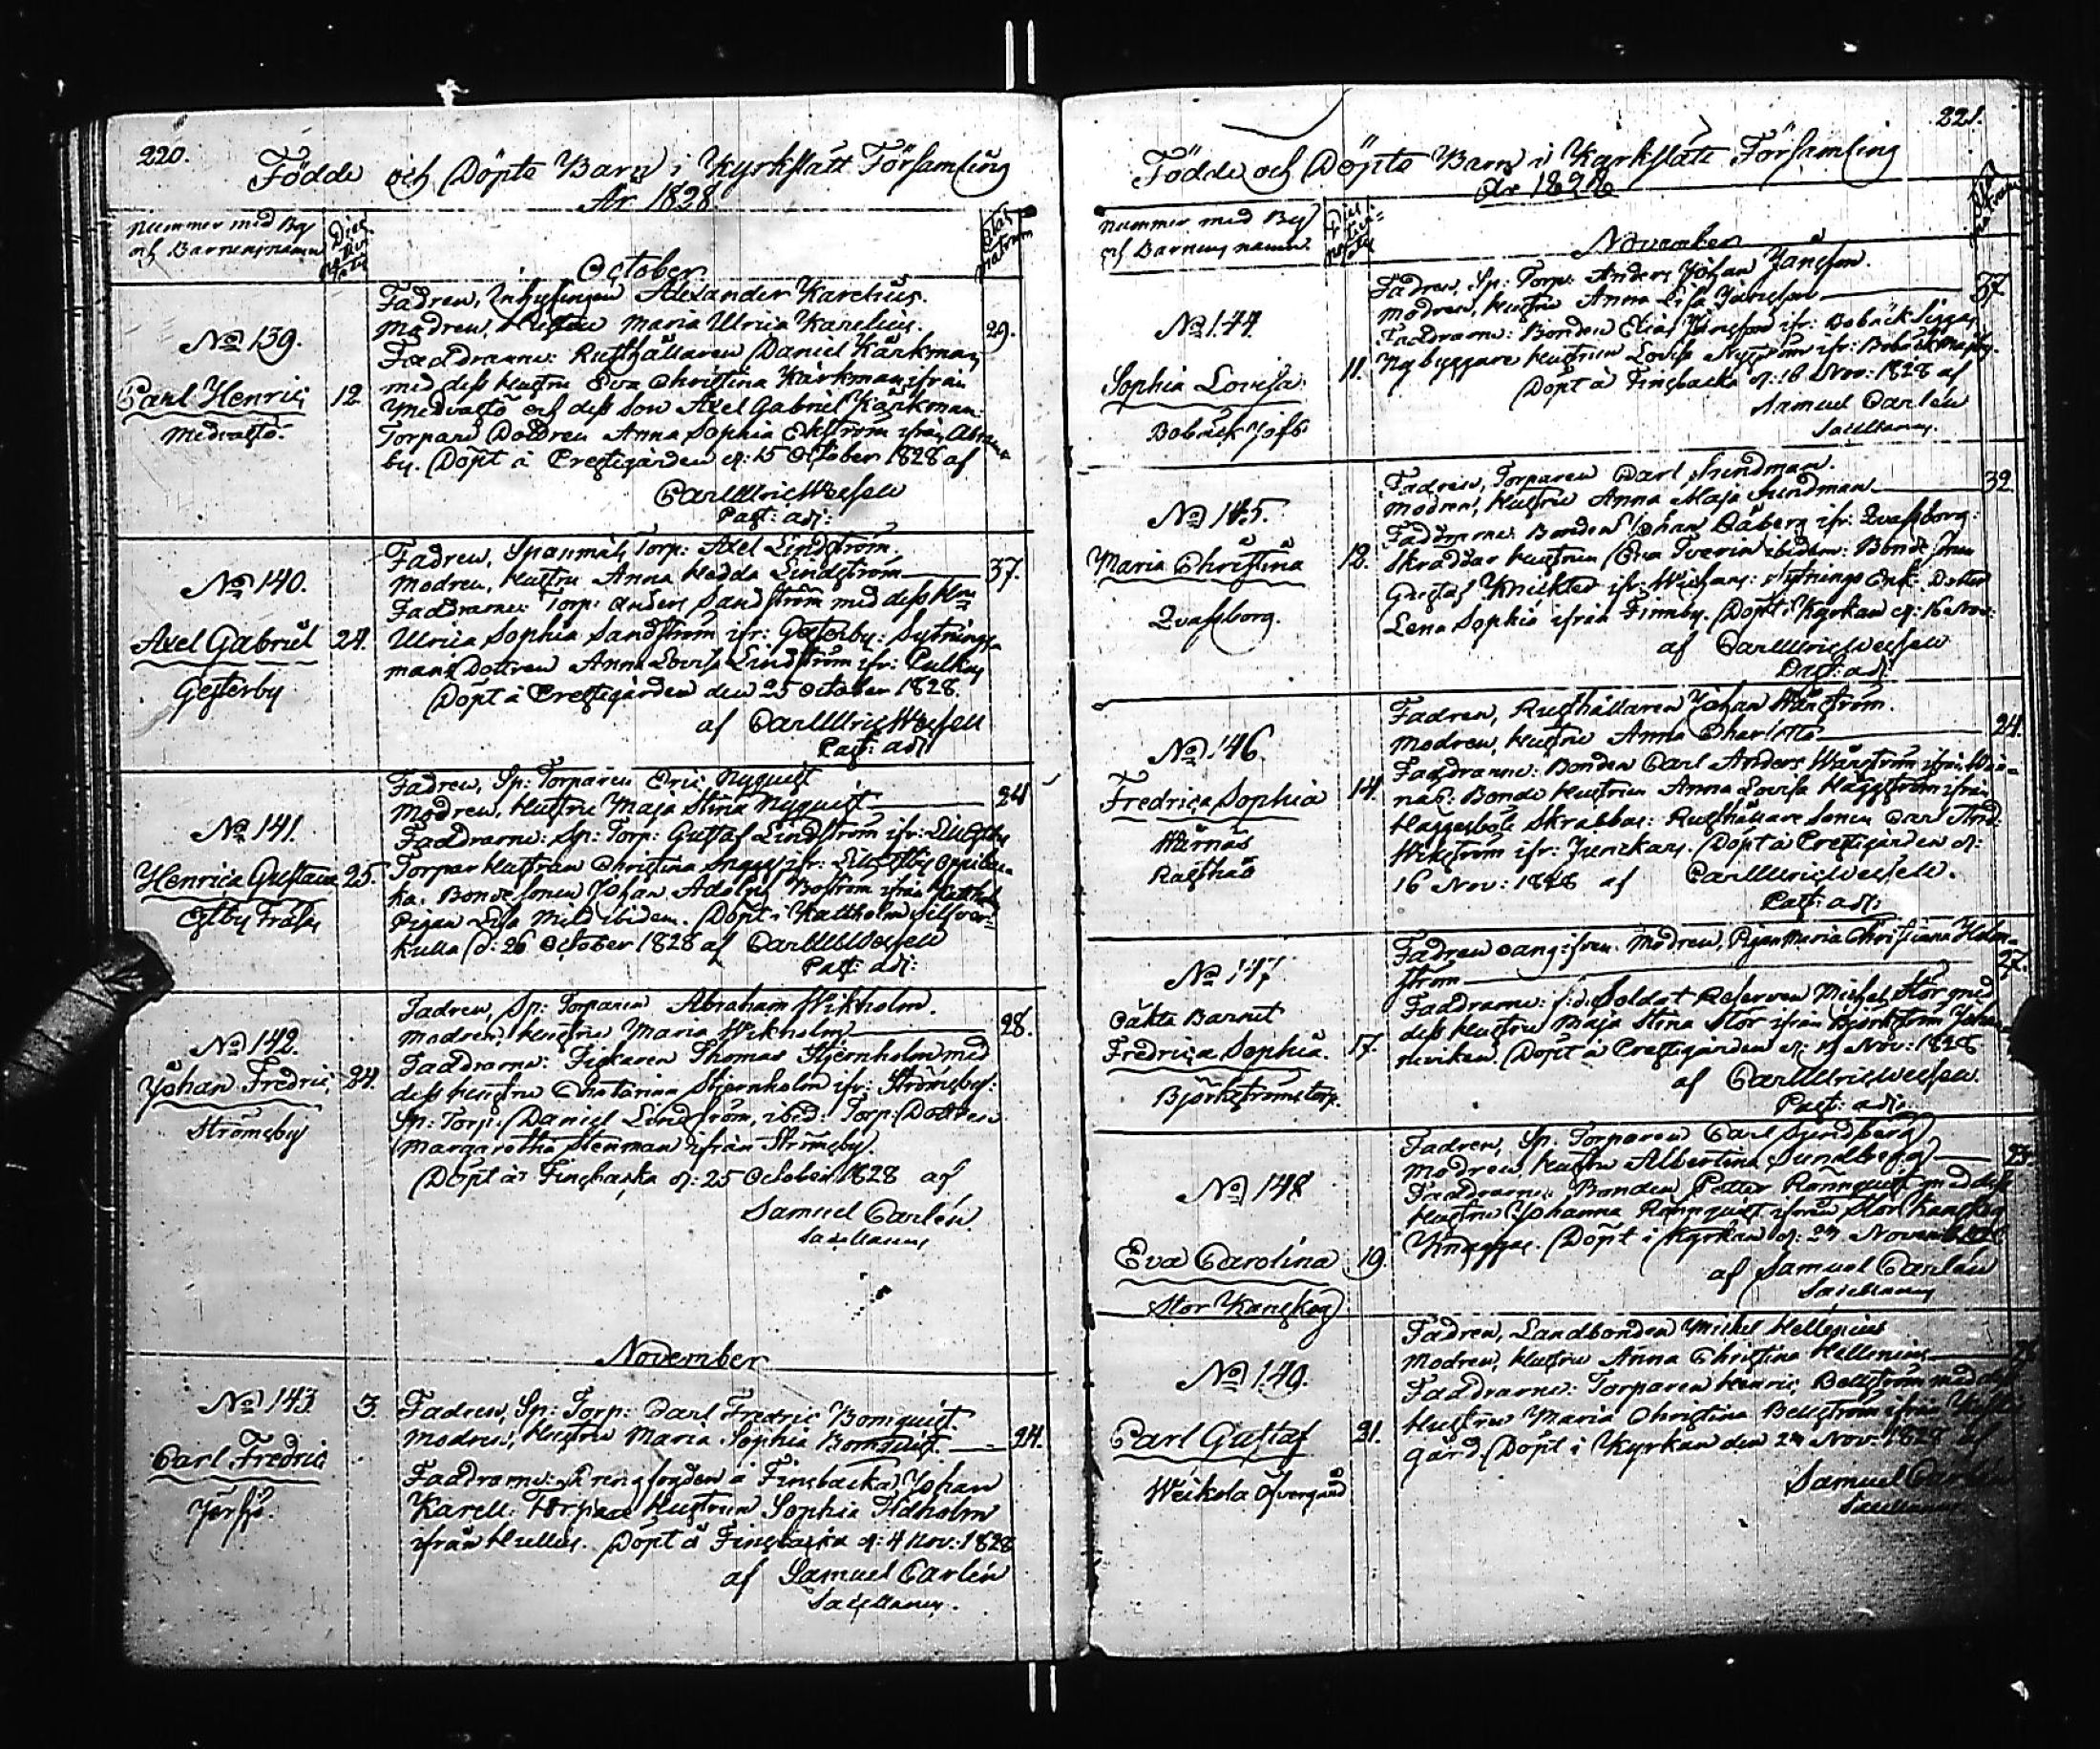 220.
Födde och Döpte Barn i Kyrkslätt Församling
År 1828.
Nummer med By
och Barnens namn
Dies nativitatis
Ætas matrum
October
No 139.
Carl Henric
Medvastö.
12
Fadren, Inhysingen Alexander Karelius.
Modren, Hustru Maria Ulrica Karelius.
29.
Faddrarne: Rusthållaren Daniel Kärkman
med dess Hustru Eva Christina Kärkman ifrån
Medvastö och dess Son Axel Gabriel Kärkman.
Torpare Dottren Anna Sophia Ekström ifrån
by. Döpt å Prestgården d: 15 October 1828 af
Carl Ulric Wessell
Past: adj:
No 140.
Axel Gabriel
Gesterby
24.
Fadren, Spanmåls Torp: Axel Lindström.
Modren, Hustru Anna Hedda Lindström
37.
Faddrarne: Torp: Anders Sandström med dess Hu
Ulrica Sophia Sandström ifr: Gesterby: Sytnings
mans Dottren Anna Lovisa Lindström ifr:
Döpt å Prestgården den 25 October 1828.
af Carl Ulric Wessell
Past: adj:
No 141.
Henrica Gustava
Estby Fräsas
25.
Fadren, Sp: Torparen Eric Nyquist
Modren, Hustru Maja Stina Nyquist
24
Faddrarne: Sp: Torp: Gustaf Lindström ifr:
Torpar Hustrun Christina Snagg ifr:
ka. Bonde sonen Johan Adolph Boström ifrån
Pigan Lisa Mild ibidem. Döpt i Kattholm Silfver-
kulla d: 26 October 1828 af Carl Ul Wessell
Past: adj:
No 142.
Johan Fredric
Strömsby
24.
Fadren, Sp: Torparen Abraham Wikholm.
Modren, Hustru Maria Wikholm
28.
Faddrarne: Fiskaren Thomas Stjernholm med
dess Hustru Chatarina Stjernholm ifr: Strömsby:
Sp: Torp: Daniel Lindström, ibid: Torp: Dottren
Margaretha Stenman ifrån Strömsby.
Döpt å Finsbacka d: 25 October 1828 af
Samuel Carlén
Sacellanus
November
No 143
Carl Fredric
3.
Fadren, Sp: Torp: Carl Fredric Bomquist.
Modren, Hustru Maria Sophia Bomquist.
24.
Faddrarne: å Finsbacka, Johan
Karell: Torpare Hustrun Sophia
ifrån Hulluss. Döpt å Finsbacka d: 4 Nov: 1828
af Samuel Carlén
Sacellanus.
221.
Födde och Döpte Barn i Kyrkslätt Församling
År 1828
Nummer med By
och Barnens namn.
Dies nativitatis
November
No 144.
Sophia Lovisa
Bobäck
11.
Fadren, Sp: Torp: Anders Johan Jansson.
Modren, Hustru Anna Lisa Jansson
37.
Faddrarne: Bonden Elias Jansson ifr: Bobäck Siggas
Nybyggare Hustrun Lovisa Nyström ifr: Bobäck
Döpt å Finsbacka d: 16 Nov: 1828 af
Samuel Carlén
Sacellanus.
No 145.
Maria Christina
Qvarsborg.
12.
Fadren, Torparen Carl Sundman.
Modren, Hustru Anna Maja Sundman
32
Faddrarne: Bonden Johan ifr: Qvarsborg:
Skräddar Hustrun Eva ibidem: Bonde
Gustaf ifr: Sytnings Enk: Dotter
Lena Sophia ifrån Finnby. Döpt i Kyrkan d: 16 Nov:
af Carl Ulric Wessell
Past: adj:
No 146.
Fredrica Sophia
Wärnäs
Rusthåll
14.
Fadren, Rusthållaren Johan Wänström.
Modren, Hustru Anna Charlotta
24.
Faddrarne: Bonden Carl Anders Wänström ifrån Wär-
näs: Bonde Hustrun Anna Lovisa Häggström ifrån
Häggesböle Skrabbas: Rusthållare Sonen Carl And:
Wikström ifr: Junickars. Döpt å Prestgården d:
16 Nov: 1828 af Carl Ulric Wessell.
Past: adj:
No 147
Oäkta Barnet
Fredrica Sophia.
Björkströmstorp.
17.
Fadren oangifven. Modren, Pigan Maria Christiana Holm-
ström
27.
Faddrarne: f:d: Soldat Reserven Michel Stor med
dess Hustru Maja Stina Stor ifrån Björkström
neviken. Döpt å Prestgården d: 19 Nov: 1828
af Carl Ulric Wessell.
Past: adj:
No 148
Eva Carolina
Stor Kanskog
19.
Fadren, Sp: Torparen Carl Sundberg
Modren, Hustru Albertina Sundberg
Faddrarne: Bonden Petter Rönnquist med dess
Hustru Johanna Rönnquist ifrån Stor Kanskog
Knaggas. Döpt i Kyrkan d: 24 November 1828
af Samuel Carlén
Sacellanus
No 149.
Carl Gustaf
Weikola Öfvergård
21.
Fadren, Landbonden Michel Hellenius
Modren, Hustru Anna Christina Hellenius
Faddrarne: Torparen Henric Bellström med dess
Hustru Maria Christina Bellström ifrån
gård. Döpt i Kyrkan den 24 Nov: 1828 af
Samuel Carlén
Sacellanus